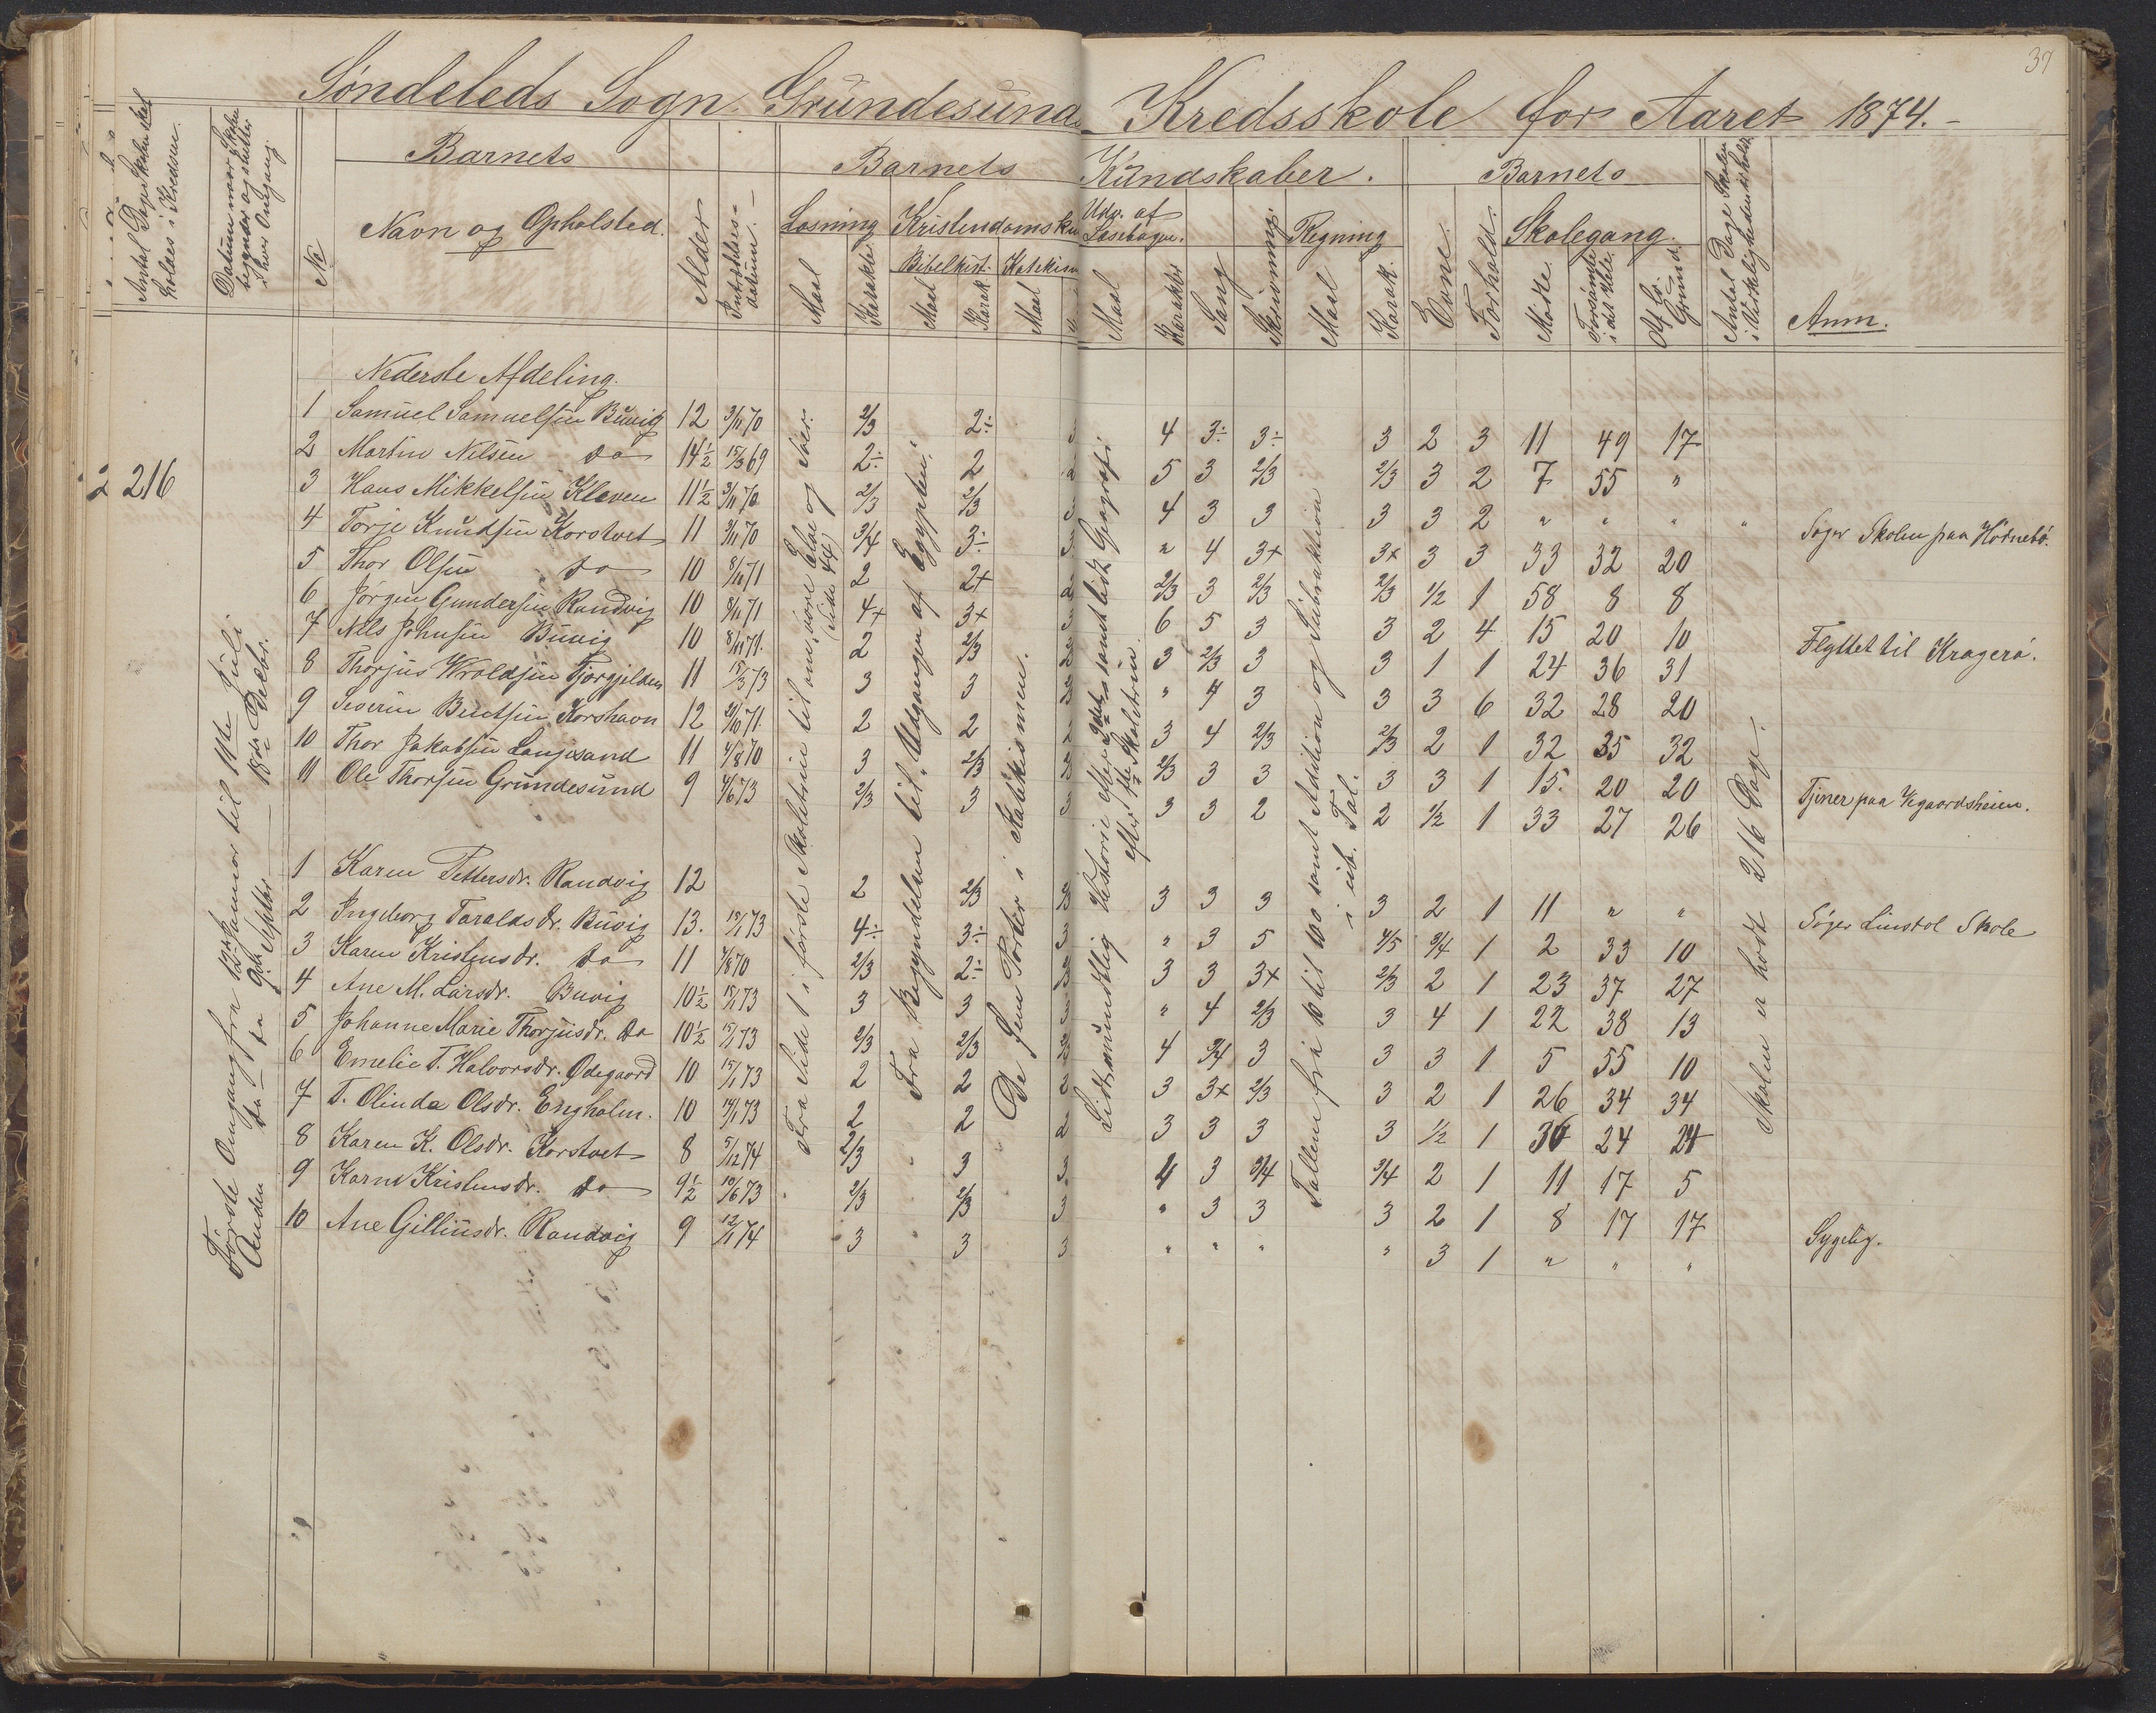 37
Søndeleds Sogn. Grundesund Kredsskole for Aaret 1874.
Antal Dage Skolen skal holdes i Kredsen.
Datum naar Skolen begynder og slutter i hver Omgang.
No
Barnets
Navn og Opholsted.
Alder
Indtrædelses-datum.
Barnets Kundskaber.
Læsning
Maal
Karakter
Kristendomsk
Bibelhist.
Maal
Karak.
Katekism
Maal
Udv. af Læsebogen.
Maal
Karakter
Sang
Skrivning.
Regning
Maal
Karak.
Evne.
Forhold.
Barnets
Skolegang.
Mødte.
Forsømte i det Hele.
Af lo. Grund.
Antal Dage Skolen i Virkeligheden er holdt
Anm.
216
Første Omgang fra 12te Januar til 11te Juli
Anden do fra 9de Septbr. 18de Decbr.
Fra Side 1 i første Skoletrin til om, vore Klæ og Iver. (Side 44)
Fra Begyndelsen til Udgangen af Egypten.
De fem Parter i Katekismen.
Lidt mundtlig Historie efter 2det samt lidt Geografi efter 1ste Skoletrin.
Tallene fra 10 til 100 samt Addition og Subtraktion i ub. Tal.
Skolen er holdt 216 Dage.
Nederste Afdeling.
1 Samuel Samuelsen Buvig 12 3/11 70 2/3 2÷ 3 4 3÷ 3÷ 3 2 3 11 49 17
2 Martin Nilsen do 14½ 15/3 69 2÷ 2 2 5 3 2/3 2/3 3 2 7 55 "
3 Hans Mikkelsen Kleven 11½ 3/11 70 2/3 2/3 3 4 3 3 3 3 2 " " " " Søger Skolen paa Hørnebø.
4 Torje Knudsen Korstvet 11 3/11 70 3/4 3÷ 3 " 4 3+ 3+ 3 3 33 32 20
5 Thor Olsen do 10 8/11 71 2 2+ 2 2/3 3 2/3 2/3 1/2 1 58 8 8
6 Jørgen Gundersen Randvig 10 8/11 71 4+ 3+ 3 6 5 3 3 2 4 15 20 10 Flyttet til Kragerø.
7 Nils Johnsen Buvig 10 8/11 71. 2 2/3 2/3 3 2/3 3 3 1 1 24 36 31
8 Thorjus Wroldsen Tjorgjilden 11 15/3 73 3 3 2/3 " 4 3 3 3 6 32 28 20
9 Severin Berntsen Korshavn 12 21/10 71. 2 2 2 3 4 2/3 2/3 2 1 32 35 32
10 Thor Jakobsen Langsand 11 4/8 70 3 2/3 2/3 2/3 3 3 3 3 1 15. 20 20 Tjener paa Vegaardsheien.
11 Ole Thorsen Grundesund 9 4/6 73 2/3 3 3 3 3 2 2 1/2 1 33 27 26
1 Karen Pettersdr. Randvig 12 2 2/3 2/3 3 3 3 3 2 1 11 " " Søger Linstøl Skole
2 Ingeborg Taraldsdr. Buvig 13. 15/1 73 4÷ 3÷ 3 " 3 5 4/5 3/4 1 2 33 10
3 Karen Kristensdr. do 11 4/8 70 2/3 2÷ 2/3 3 3 3+ 2/3 2 1 23 37 27
4 Ane M. Larsdr. Buvig 10½ 15/1 73 3 3 3 " 4 2/3 3 4 1 22 38 13
5 Johanne Marie Thorjusdr. do 10½ 15/1 73 2/3 2/3 2/3 4 3/4 3 3 3 1 5 55 10
6 Emelie T. Halvorsdr. Ødegaard 10 15/1 73 2 2 2 3 3+ 2/3 3 2 1 26 34 34
7 T. Olinda Olsdr. Engholm. 10 14/1 73 2 2 2 3 3 3 3 1/2 1 36 24 24
8 Karen K. Olsdr. Korstvet 8 5/12 74 2/3 3 3 4 3 3/4 3/4 2 1 11 17 5
9 Karen Kristensdr. do 9½ 10/6 73 2/3 2/3 3 " 3 3 3 2 1 8 17 17
10 Ane Gilliusdr. Randvig 9 12/1 74 3 3 3 " " " " 3 1 " " " Sygelig.